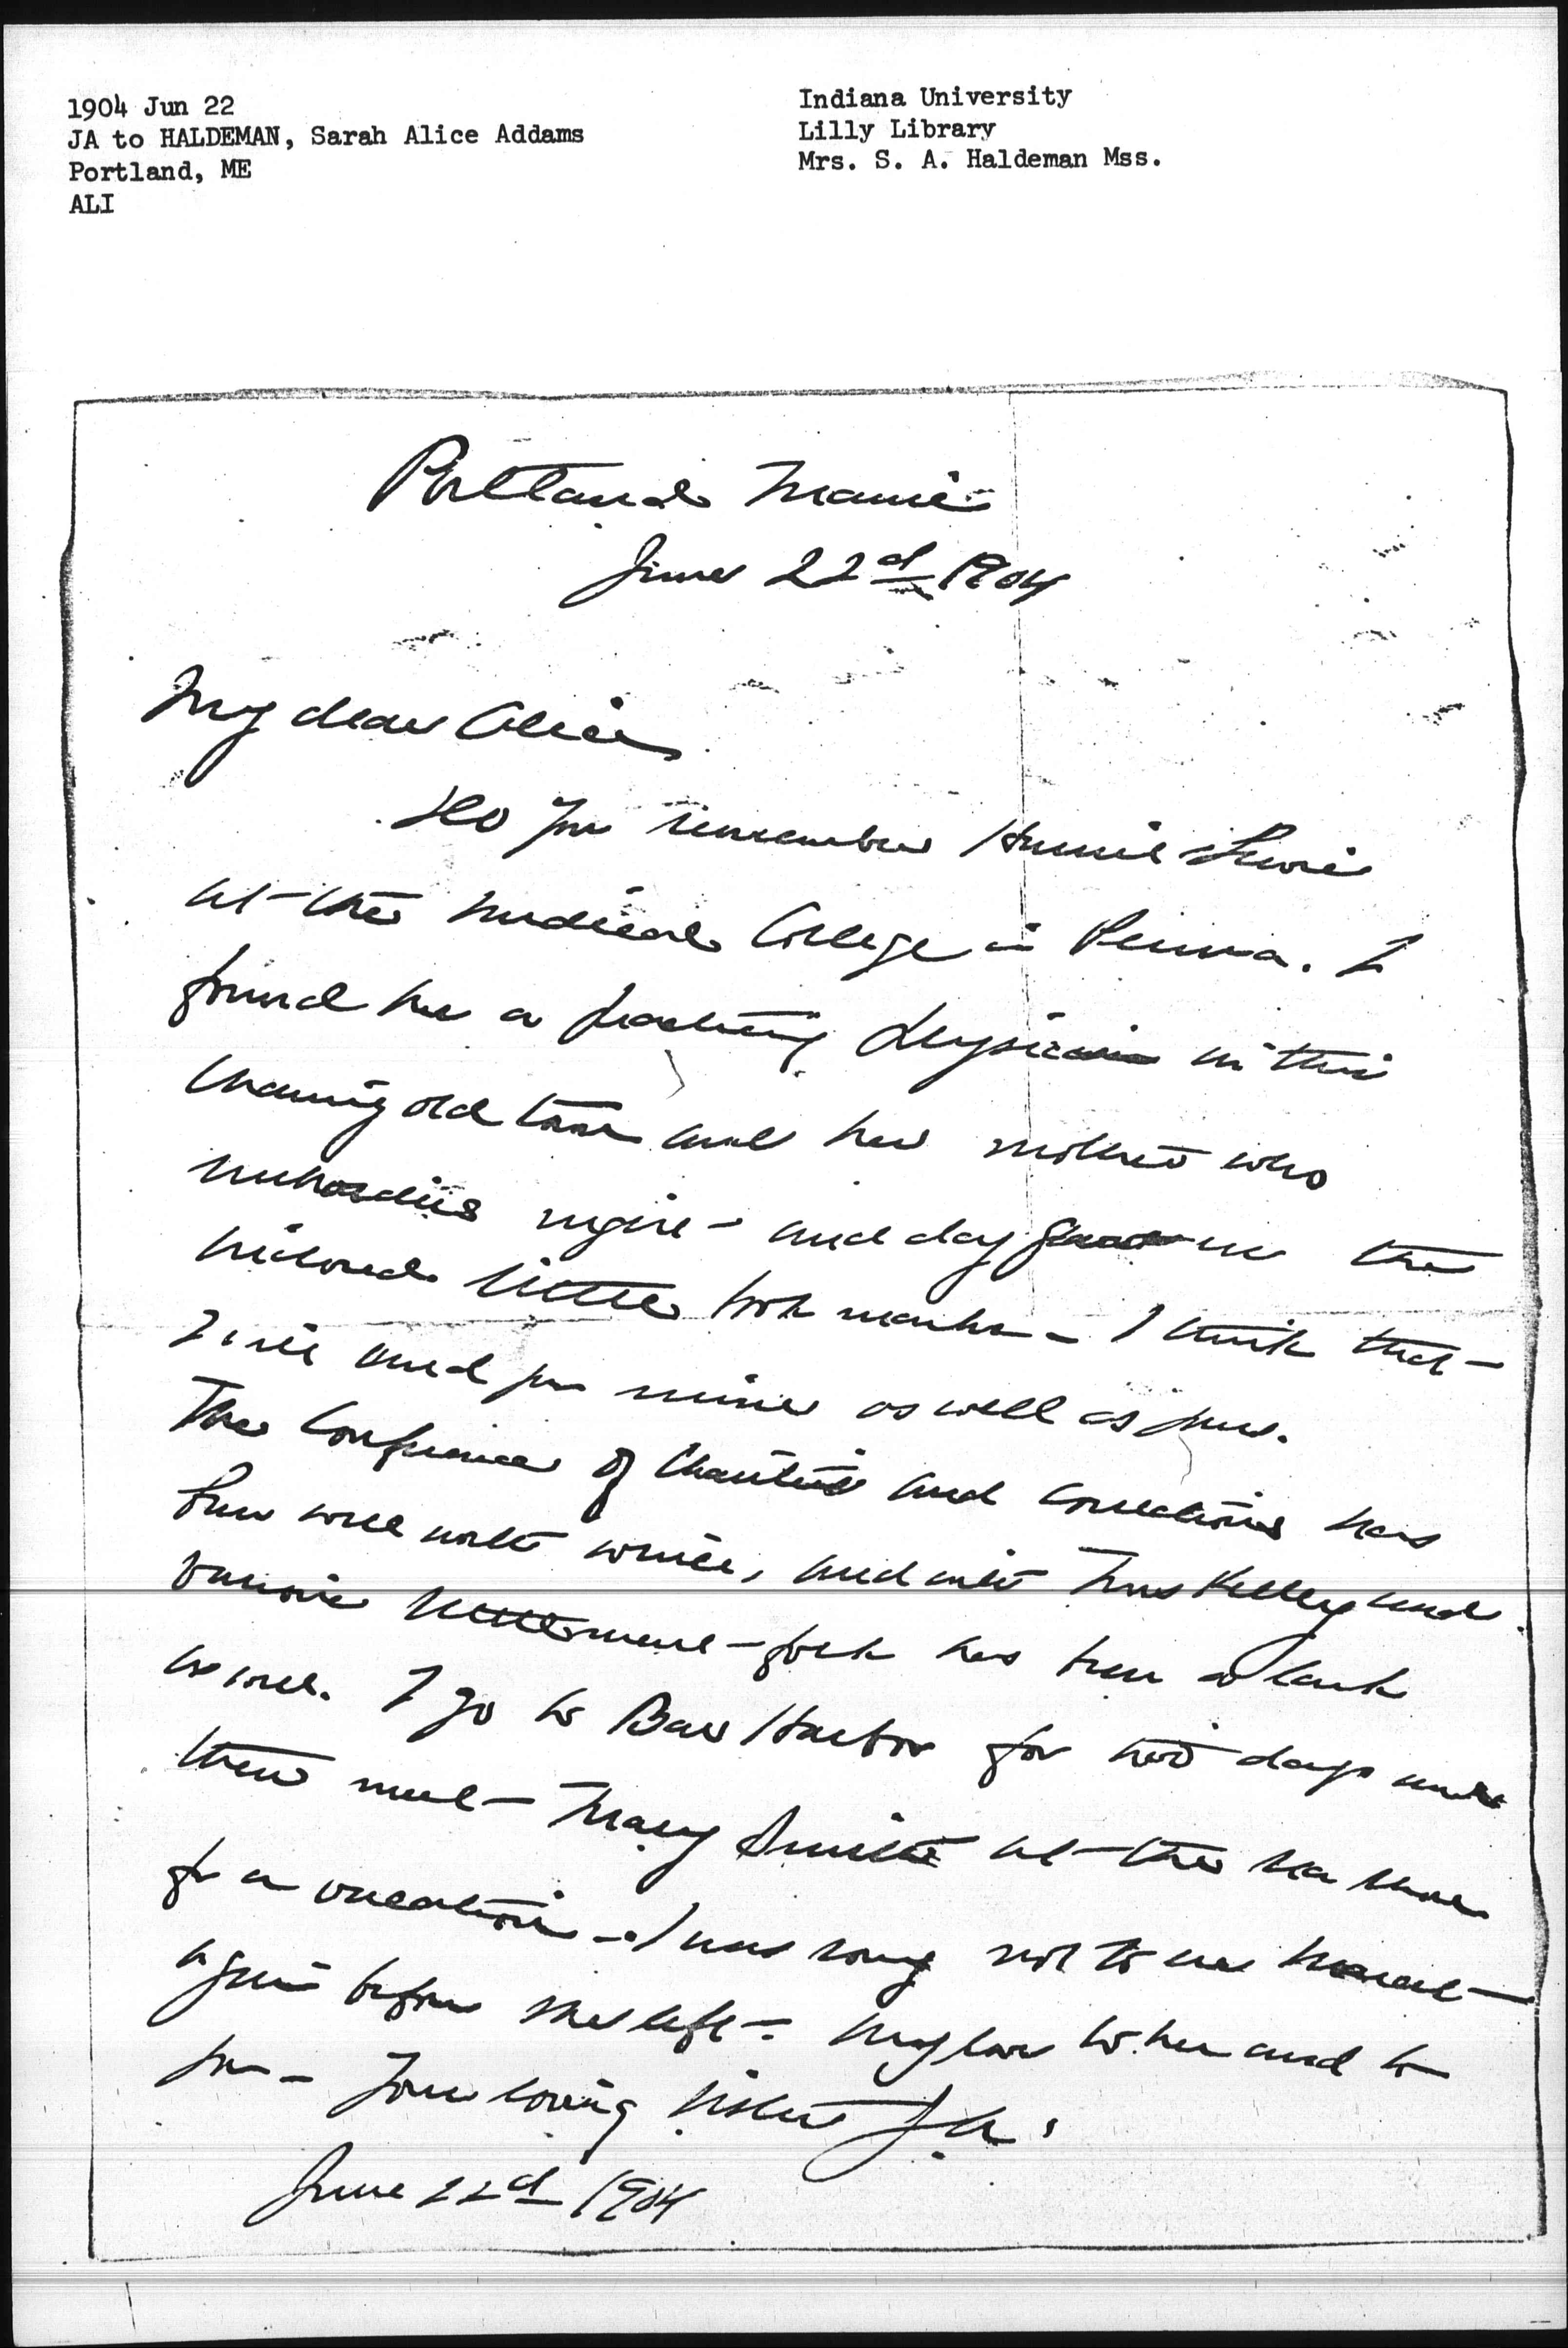 1904 Jun 22
JA to HALDEMAN, Sarah Alice Addams
Portland, ME
ALI
Indiana University
Lilly Library
Mrs. S. A. Haldeman Mss.
Portland Maine
June 22d 1904
My dear Alice
Do you remember
at the Medical College in Penna. I
found her a practicing physician in this
charming old town and her mother who
embroiders night and day me the
little book marks – I think that
and for mine as well as yours.
The Conference of Charities and Corrections has
been well worth while, and with Mrs Kelley and
various settlement folk has been a lark
as well. I go to Bar Harbor for two days and
then meet Mary Smith at the sea shore
for a vacation – I was sorry not to see Marcet
again before she left – My love to her and to
you – Your loving sister J.A.
June 22d 1904